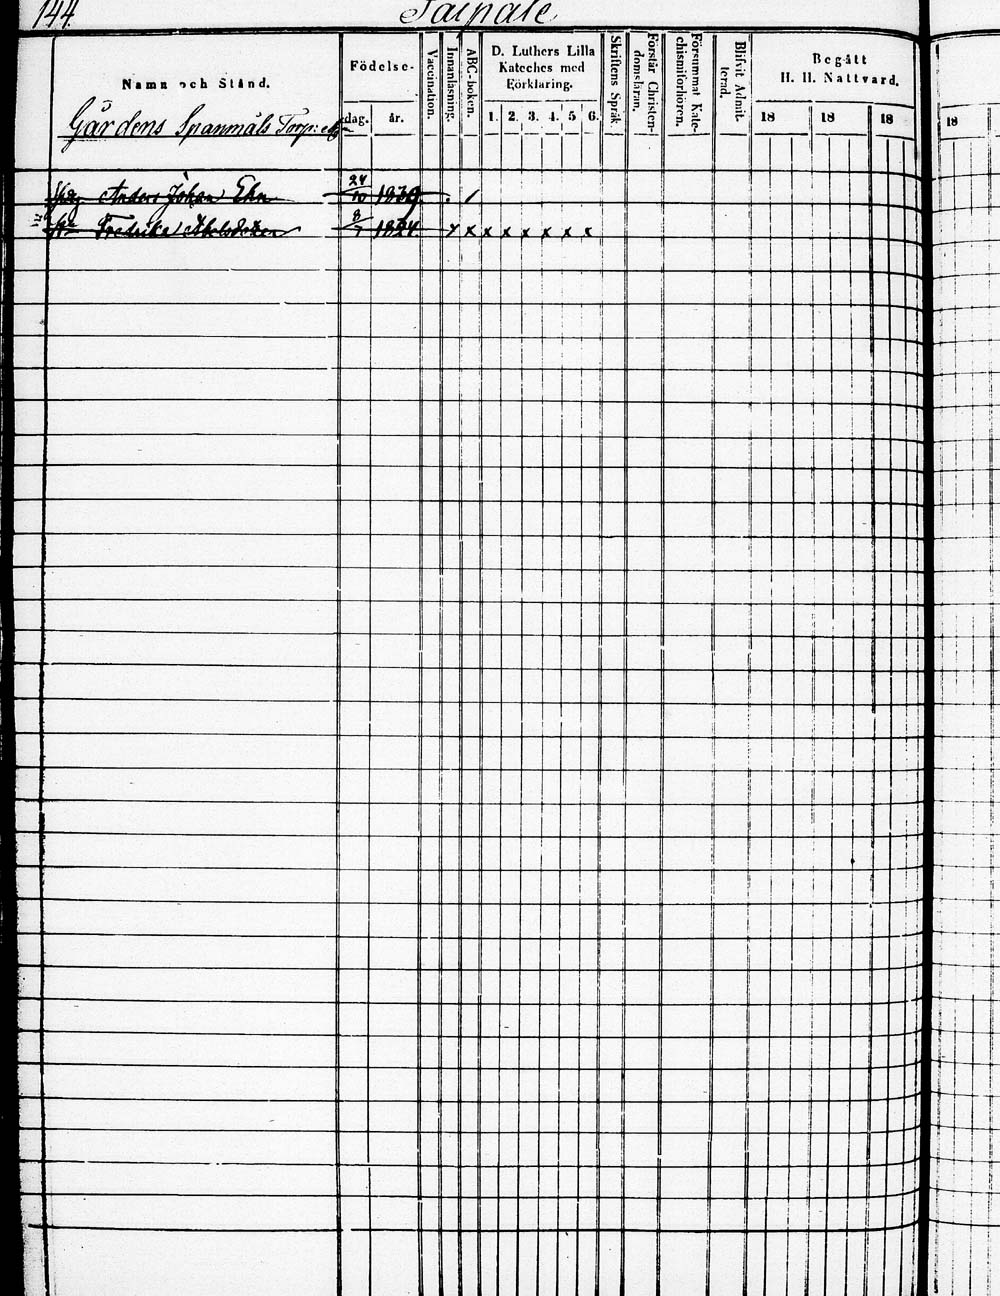 144.
Taipale
Namn och Stånd.
Födelse-
dag. år.
Vaccination.
Innanläsning.
ABC-boken.
D. Luthers Lilla
Kateches med
Förklaring.
1. 2. 3. 4. 5 6.
Skriftens Språk.
Förstår Christen-
domsläran.
Försummat Kate-
chismiförhören.
Blifvit Admit-
terad.
Begått
H. H. Nattvard.
18 18 18 18
Gårdens Spanmåls Torp:
Anders Johan Ehn 24/10 1839. /
Fredrika 8/7 1824. x x x x x x x x